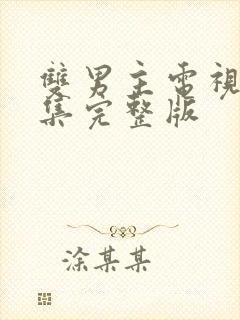 雙男主電視
集完整版
涂某某